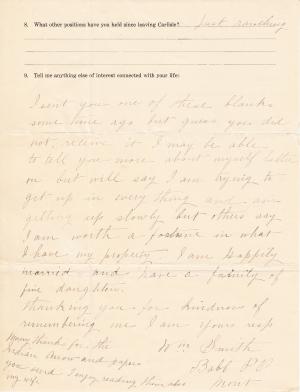 8. What other positions have you held since leaving Carlisle? Just ranching
9. Tell me anything else of interest connected with your life:
I sent you one of these blanks
some time ago but guess you did
not receive it I may be able
to tell you more about myself later
on but will say I am trying to
get up in every thing and am
getting up slowly but others say
I am worth a fortune in what
I have my property. I am happily
married and have a family of
five daughters.
Thanking you for kindness of
remembering me I am yours resp
Wm Smith
Babb P.O.
Mont
Many thanks for the
Indian Arrow and papers
you send I enjoy reading them also
my wife